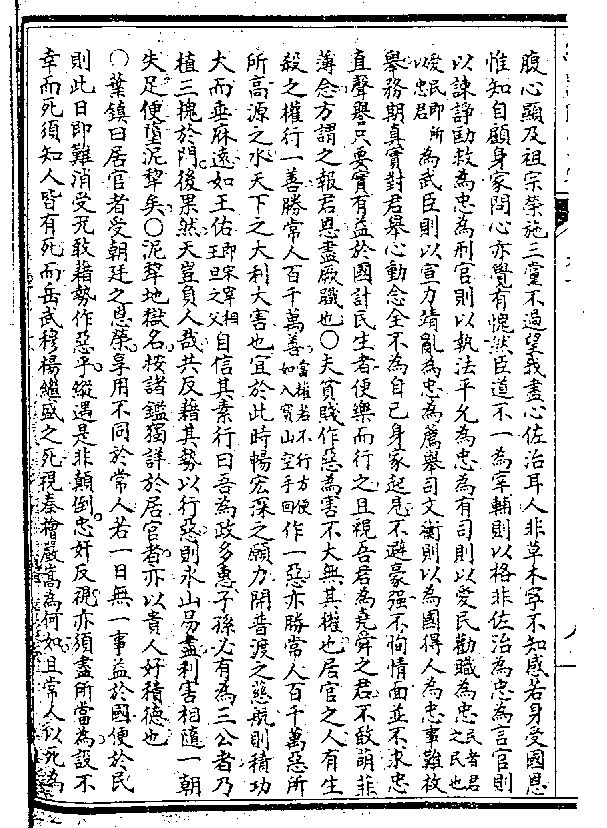 腹心顯及祖宗榮施三黨不過望我盡心佐治耳人非草木寧不知感若身受國恩
惟知自顧身家問心亦覺有愧然臣道不一為宰輔則以格非佐治為忠為言官則
以諫諍匡救為忠為刑官則以執法平允為忠為有司則以愛民勸職為忠民者君之民也
愛民即所以忠君為武臣則以宣力靖亂為忠為薦舉司文衡則以為國得人為忠事難枚
舉務期真實對君舉心動念全不為自己身家起見不避豪强不徇情面並不求忠
直聲譽只要實有益於國計民生者便樂而行之且視吾君為堯舜之君不敢萌菲
薄念方謂之報君恩盡厥職也〇夫貧賤作惡為害不大無其權也居官之人有生
殺之權行一善勝常人百千萬善當權若不行方便如入寳山空手回作一惡亦勝常人百千萬惡所
所高源之水天下之大利大害也宜於此時暢宏深之願力開普渡之慈航則積功
大而垂庥遠如王佑即宋宰相王旦之父自信其素行曰吾為政多惠子孫必有為三公者乃
植三槐於門後果然天豈負人哉共反藉其勢以行惡則氷山易盡利害相隨一朝
失足便墮泥犂矣〇泥犂地獄名按諸鑑獨詳於居官者亦以貴人好積德也
〇葉鎮曰居官者受朝廷之恩榮享用不同於常人若一日無一事益於國便於民
則此日即難消受无敢藉勢作惡乎縱遇是非顛倒忠奸反視亦須盡所當為設不
幸而死須知人皆有死而岳武穆楊繼盛之死視秦檜嚴嵩為何如且常人以死為